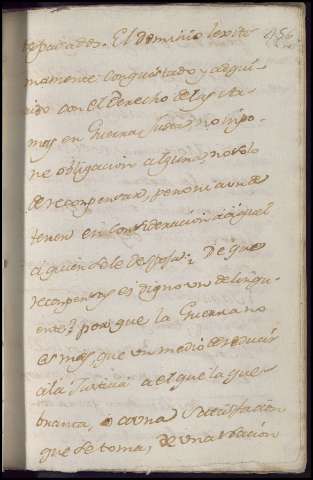 despacado. El dominio lexiti
mamente conquistado, y adqui-
rido con el Derecho de las Ar-
mas en Guerra Justa, no impo-
ne obligacion alguna, no solo
de recompensar, pero ni aun de
tener en consideracion à aquel
à quien se le despoja; De que
recompensas es digno un delinqu-
ente? por que la Guerra no
es mas, que un medio de reducir
à la Justicia a el que la que-
branta, ò como Satisfacion
que se toma, de una Nacion